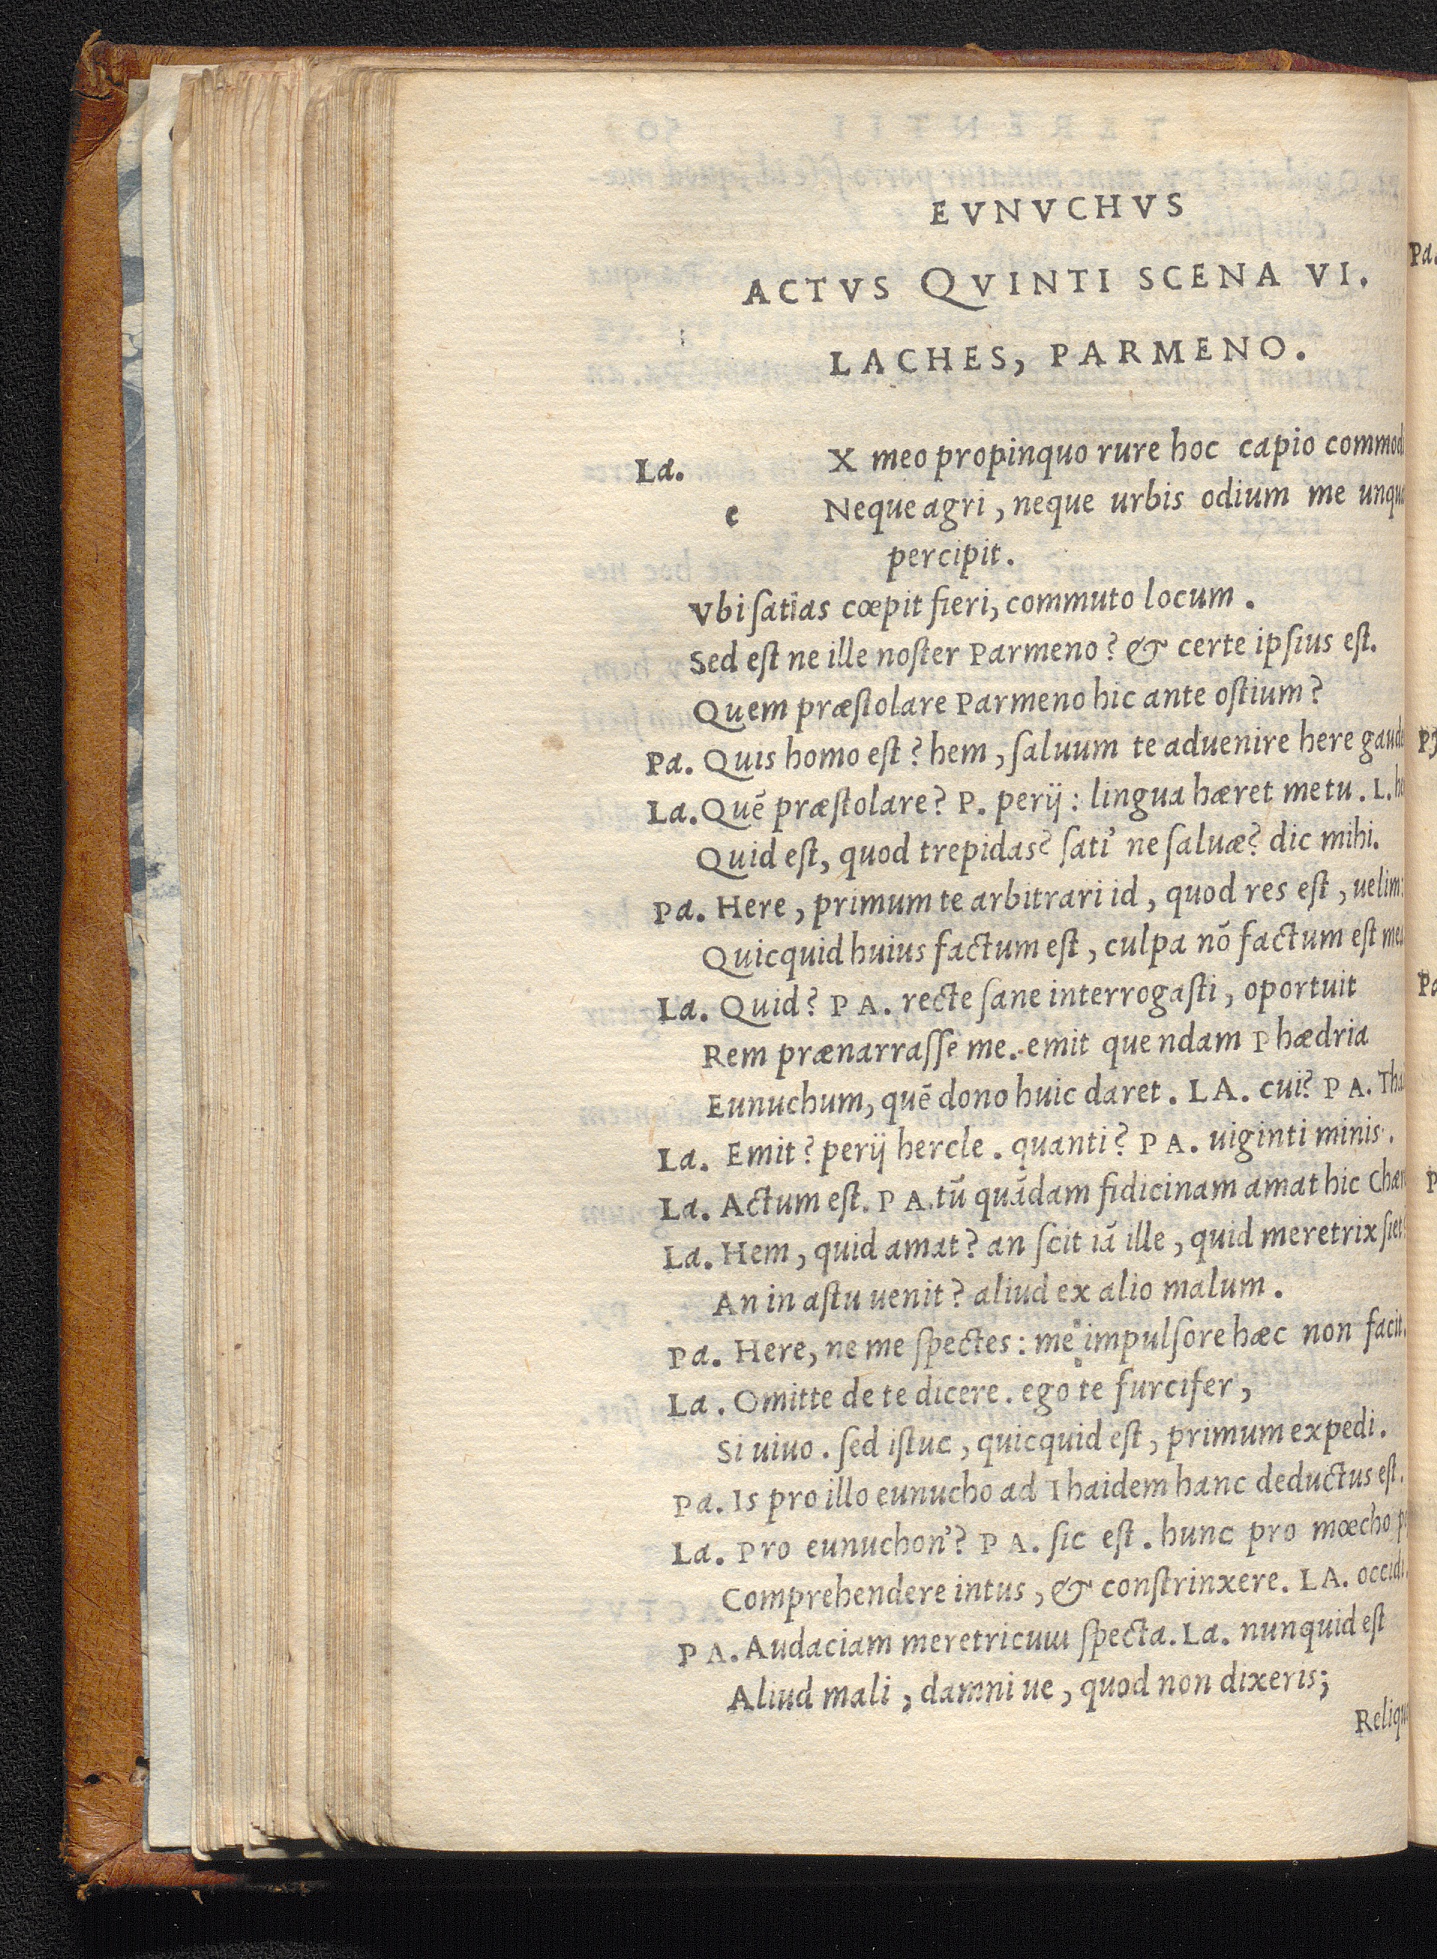 EVNVCHVS
ACTVS QVINTI SCENA VI.
LACHES, PARMENO.
La. X meo propinquo rure hoc capio
e Neque agri, neque urbis odium me
percipit.
Vbi ſatias cœpit fieri, commuto locum.
Sed eſt ne ille noſter Parmeno? & certe ipſius eſt.
Quem præſtolare Parmeno hic ante oſtium?
Pa. Quis homo eſt? hem, ſaluum te aduenire here
La. Quē præſtolare? P. perij: lingua hæret metu. L.
Quid eſt, quod trepidas? ſati' ne ſaluæ? dic mihi.
Pa. Here, primum te arbitrari id, quod res eſt, uelim:
Quicquid huius factum eſt, culpa nō factum eſt
La. Quid? PA. recte ſane interrogaſti, oportuit
Rem prænarraſſe me. emit quendam Phædria
Eunuchum, quē dono huic daret. LA. cui? PA.
La. Emit? perij hercle. quanti? PA. uiginti minis.
La. Actum eſt. PA. tū quādam fidicinam amat hic
La. Hem, quid amat? an ſcit iā ille, quid meretrix ſiet?
An in aſtu uenit? aliud ex alio malum.
Pa. Here, ne me ſpectes: me impulſore hæc non facit.
La. Omitte de te dicere. ego te furcifer,
Si uiuo. ſed iſtuc, quicquid eſt, primum expedi.
Pa. Is pro illo eunucho ad Thaidem hanc deductus eſt.
La. Pro eunuchon'? PA. ſic eſt. hunc pro mœcho
Comprehendere intus, & conſtrinxere. LA. occidi.
PA. Audaciam meretricum ſpecta. La. nunquid eſt
Aliud mali, damni ue, quod non dixeris;
Pa.